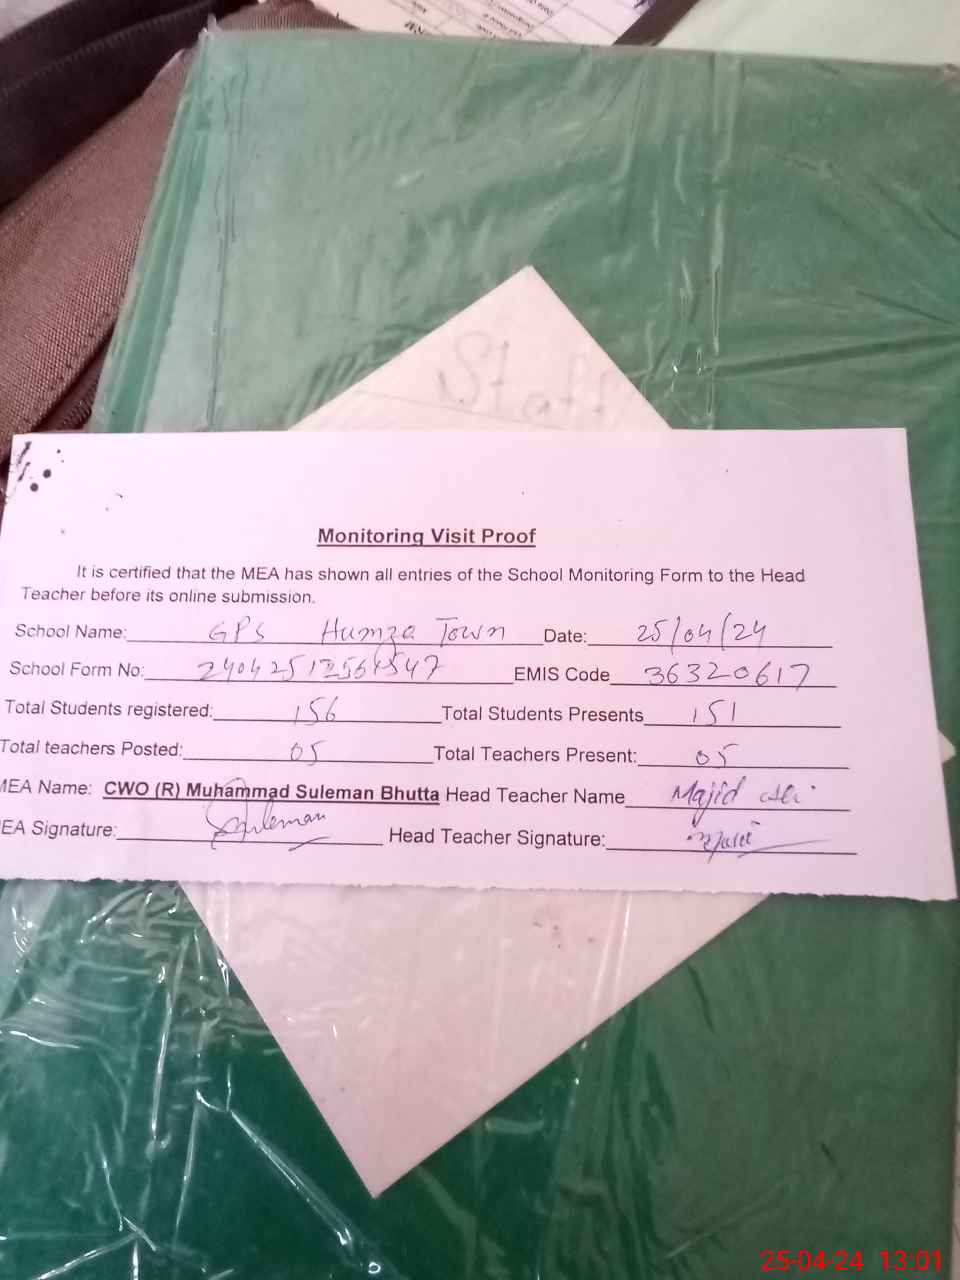 Staff
Monitoring Visit Proof
It is certified that the MEA has shown all entries of the School Monitoring Form to the Head
Teacher before its online submission.
School Name: GPS Humza Town Date: 25/04/24
School Form No: EMIS Code 36320617
Total Students registered: 156 Total Students Presents 151
Total teachers Posted: 05 Total Teachers Present: 05
MEA Name: CWO (R) Muhammad Suleman Bhutta Head Teacher Name Majid Ali
EA Signature: Suleman Head Teacher Signature: Majid
25-04-24 13:01